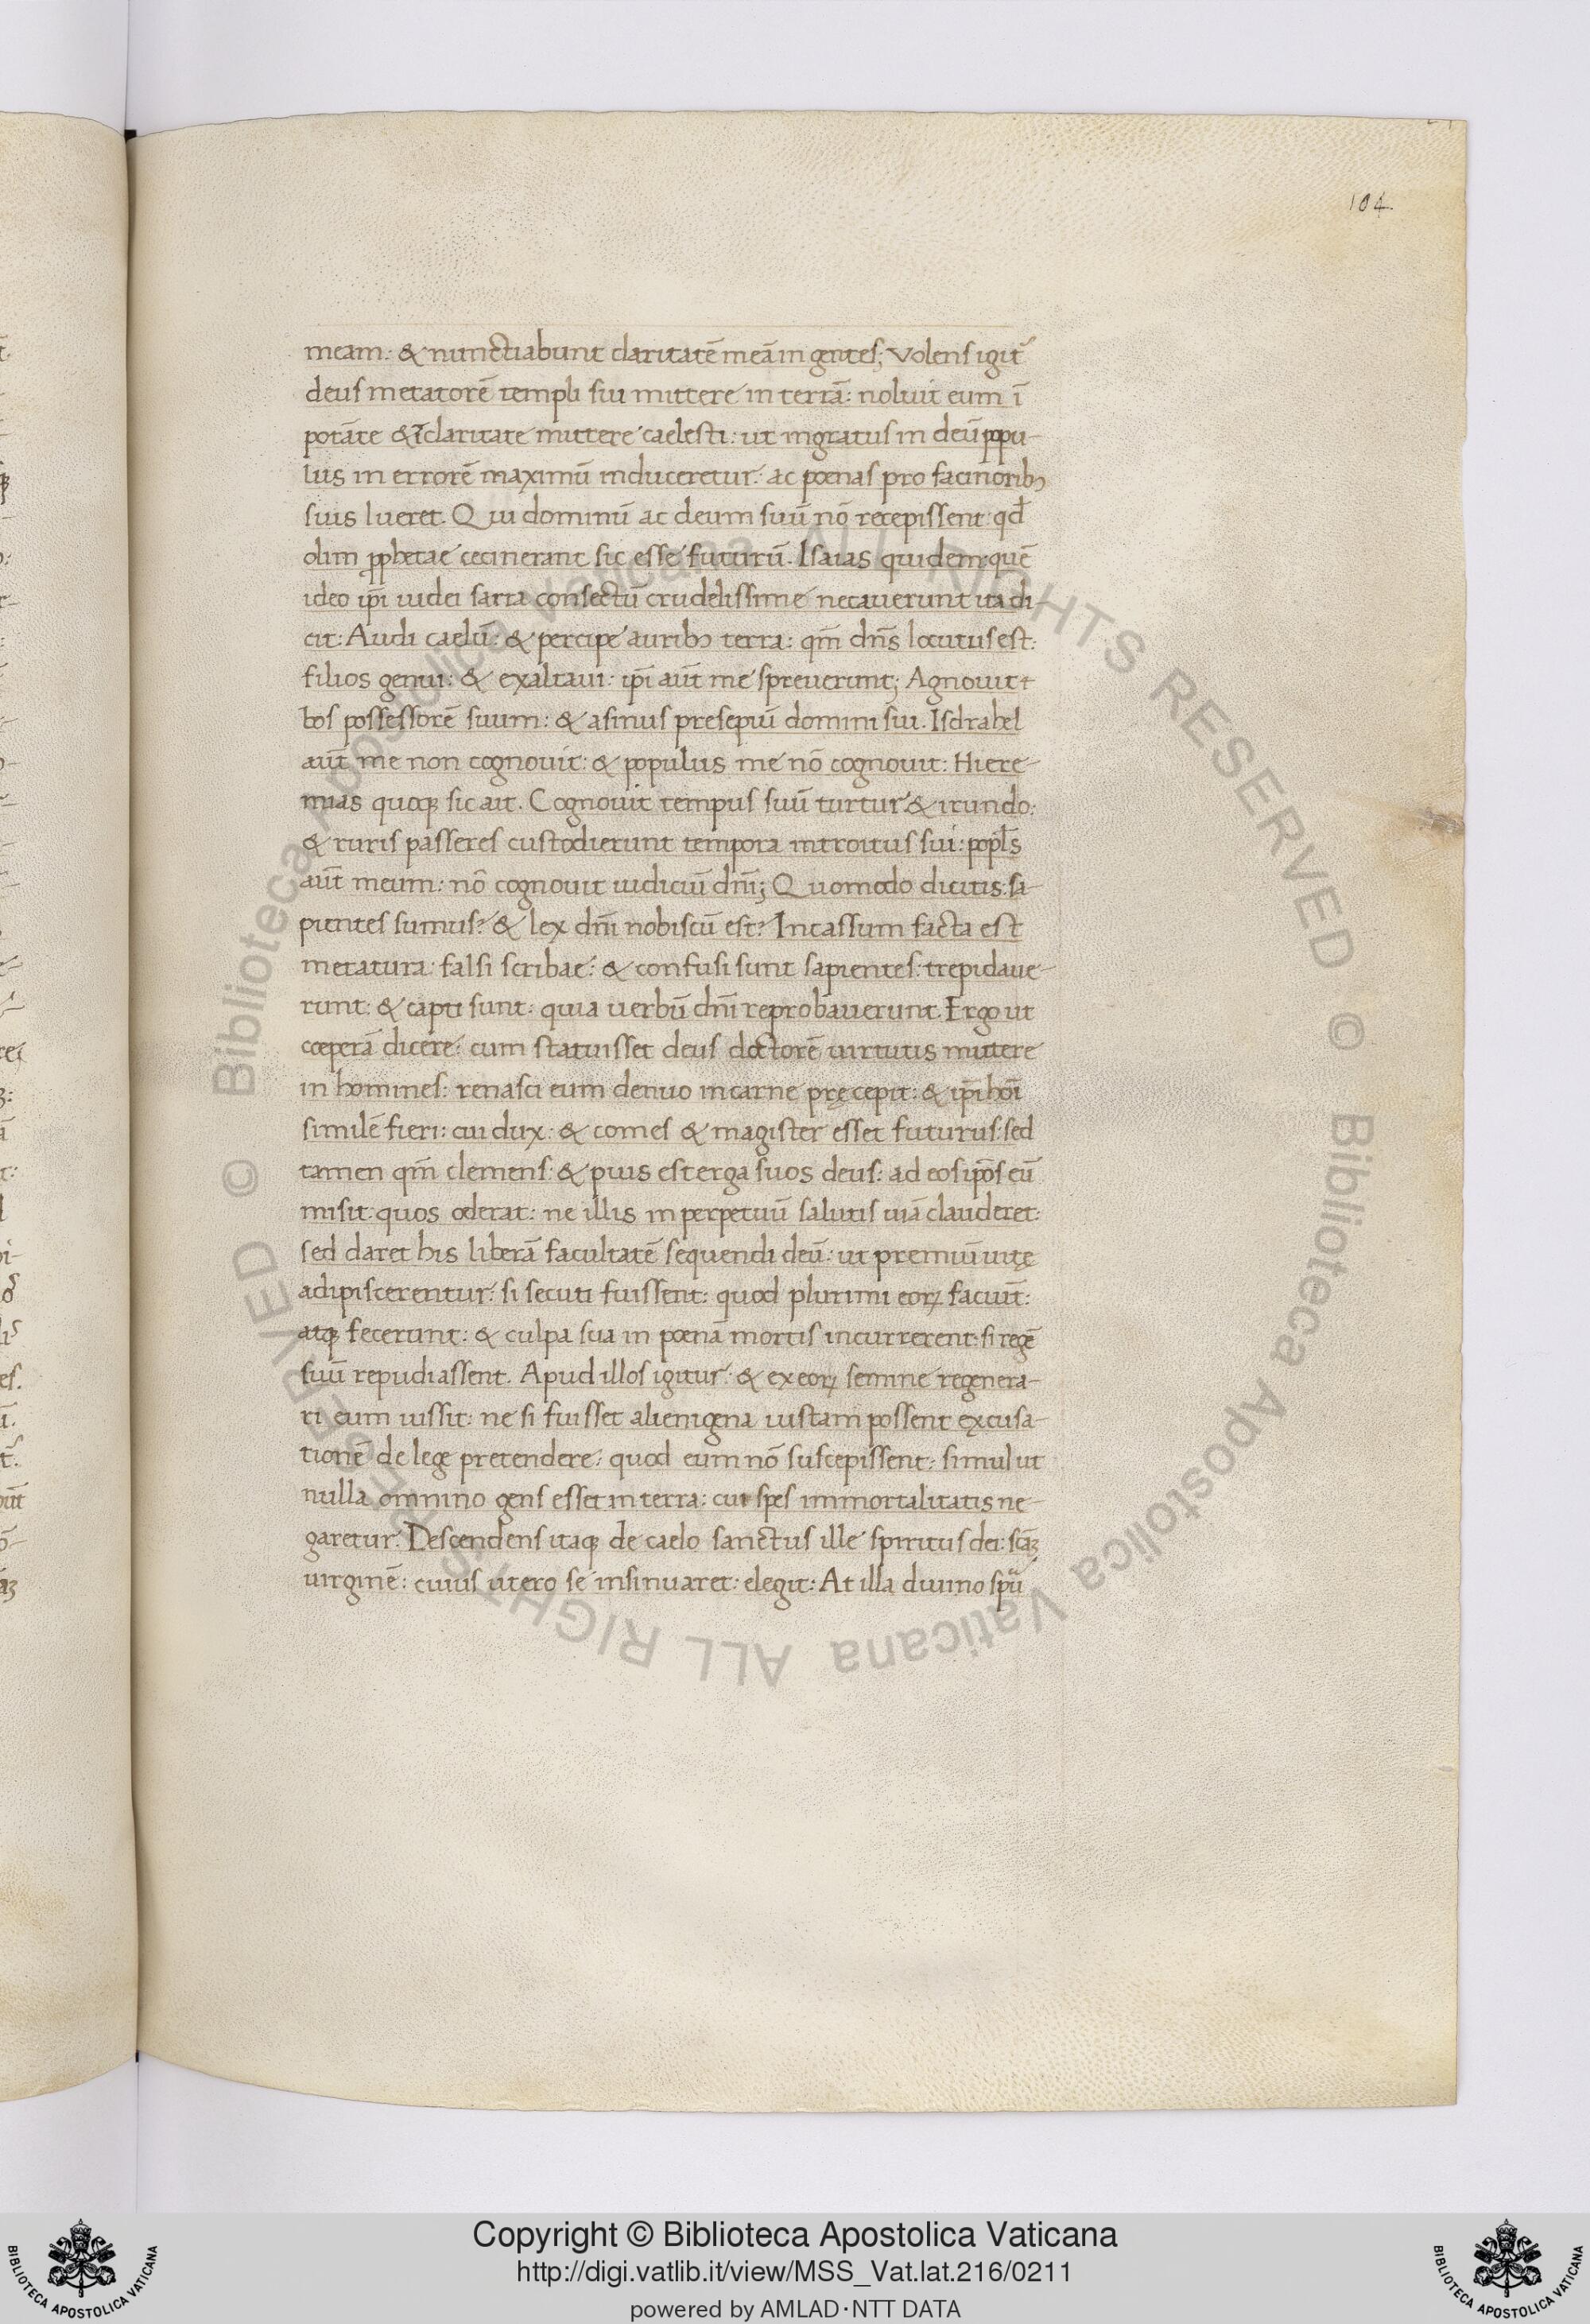 104
meam: & nunctiabunt claritatē meā in gentes; Volens igit᷑
deus metatorē templi sui mittere in terrā: noluit eum ī
potāte & ī claritate mittere caelesti: ut ingratus in deū popu-
lus in errorē maximū induceretur: ac poenas pro facinorib9
suis lueret. Qui dominū ac deum suū nō recepissent: qđ
olim pphetae cecinerant sic esse futurū. Isaias quidem: quē
ideo ip̄i iudei sarra consectū crudelissime necauerunt ita di-
cit: Audi caelū: & percipe aurib9 terra: qm̄ dn̄s locutus est:
filios genui: & exaltaui: ip̄i aūt me spreuerunt; Agnouit
bos possessorē suum: & asinus presepiū domini sui. Isdrahel
aūt me non cognouit: & populus me nō cognouit: Hiere-
mias quoqꝫ sic ait. Cognouit tempus suū turtur & irundo:
& ruris passeres custodierunt tempora introitus sui: popl̄s
aūt meum: nō cognouit iudiciū dn̄i; Quomodo dicitis: sa-
pientes sumus? & lex dn̄i nobiscū est? Incassum facta est
metatura: falsi scribae: & confusi sunt sapientes: trepidaue-
runt: & capti sunt: quia uerbū dn̄i reprobauerunt. Ergo ut
coeperā dicere: cum statuisset deus doctorē uirtutis mittere
in homines: renasci eum denuo in carne pręcepit: & ip̄i hoī
similē fieri: cui dux: & comes & magister esset futurus: sed
tamen qm̄ clemens: & pius est erga suos deus: ad eos ip̄os eū
misit: quos oderat: ne illis in perpetuū salutis uiā clauderet:
sed daret his liberā facultatē sequendi deū: ut premiū uitę
adipiscerentur: si secuti fuissent: quod plurimi eoꝝ faciūt:
atqꝫ fecerunt: & culpa sua in poenā mortis incurrerent: si regē
suū repudiassent. Apud illos igitur: & ex eoꝝ semine regenera-
ri eum iussit: ne si fuisset alienigena iustam possent excusa-
tionē de lege pretendere: quod eum nō suscepissent: simul ut
nulla omnino gens esset in terra: cui spes immortalitatis ne-
garetur. Descendens itaqꝫ de caelo sanctus ille spiritus dei: scāꝫ
uirginē: cuius utero se insinuaret: elegit: At illa diuino spū
© Biblioteca Apostolica Vaticana ALL RIGHTS RESERVED © Biblioteca Apostolica Vaticana ALL RIGHTS RESERVED
Copyright © Biblioteca Apostolica Vaticana
http://digi.vatlib.it/view/MSS_Vat.lat.216/0211
powered by AMLAD·NTT DATA
BIBLIOTECA APOSTOLICA VATICANA
BIBLIOTECA APOSTOLICA VATICANA